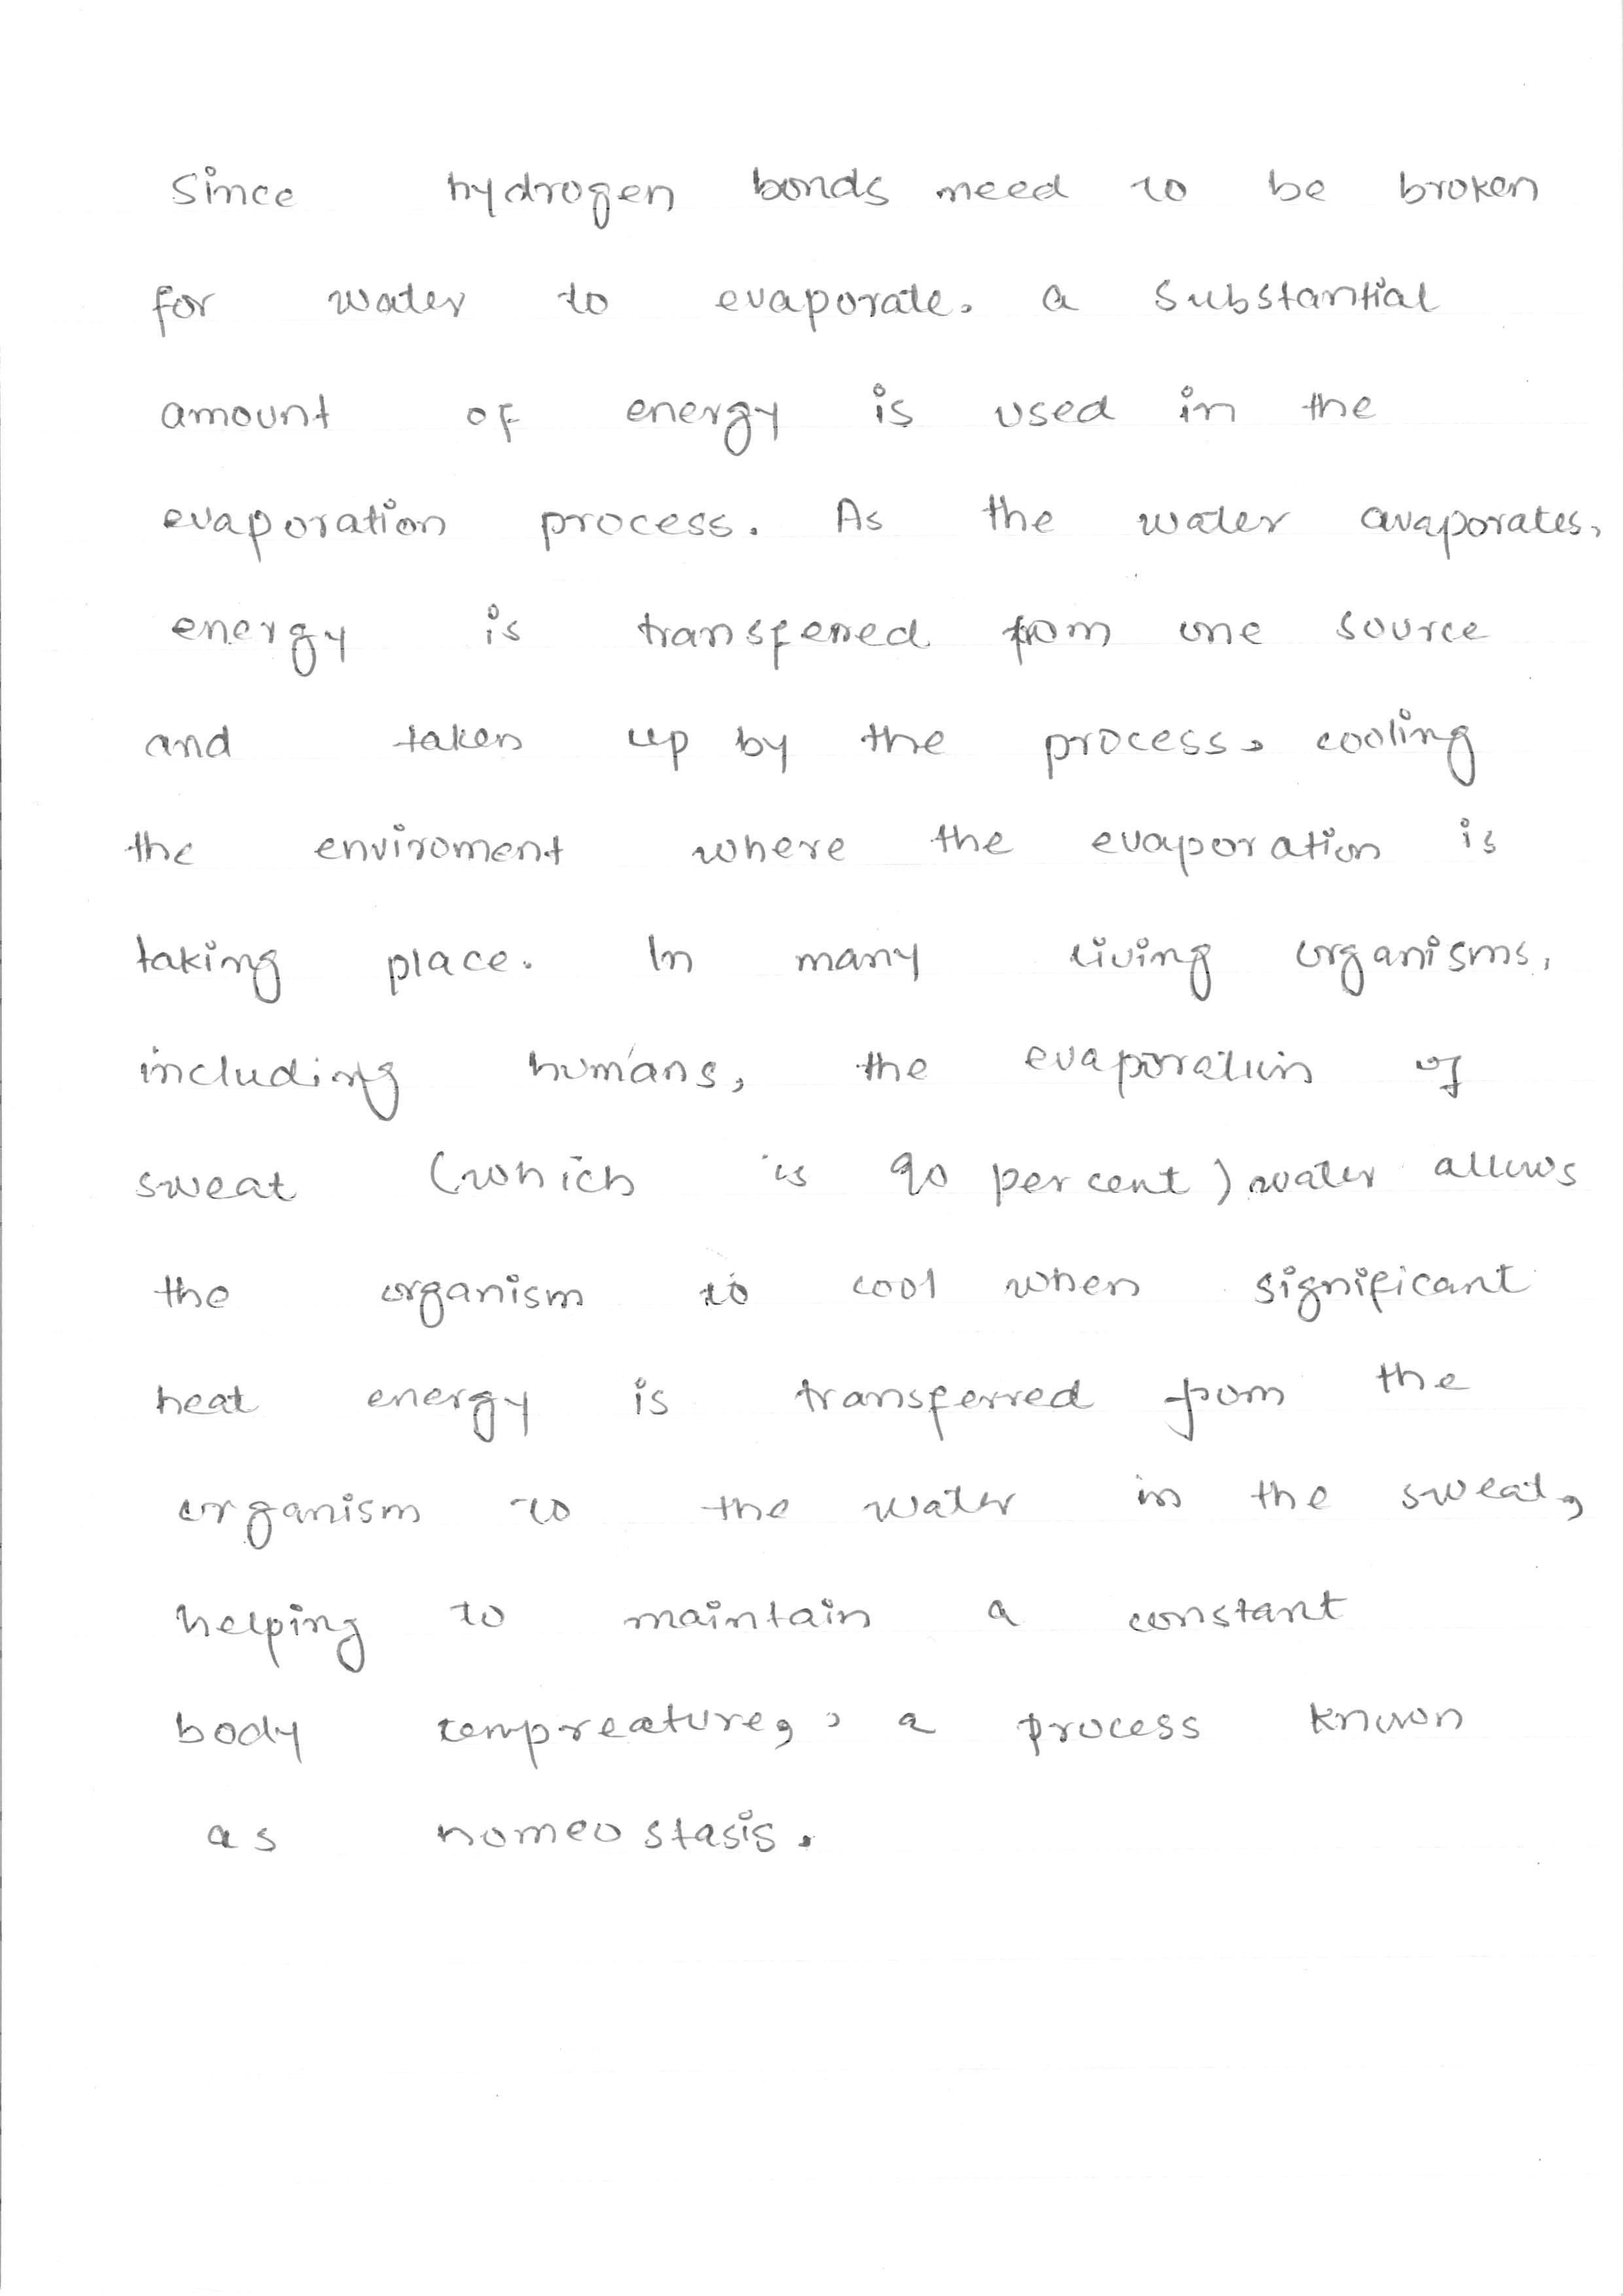 Since hydrogen bonds need to be broken
for water to evaporate, a substantial
amount of energy is used in the
evaporation process. As the water avaporates,
energy is transferred from one source
and taken up by the process, cooling
the enviroment where the evaporation is
taking place. In many living organisms,
including humans, the evaporation of
sweat (which is 90 percent) water allows
the organism to cool when significant
heat energy is transferred from the
organism to the water in the sweat,
helping to maintain a constant
body tempreature, , a process known
as homeostasis.